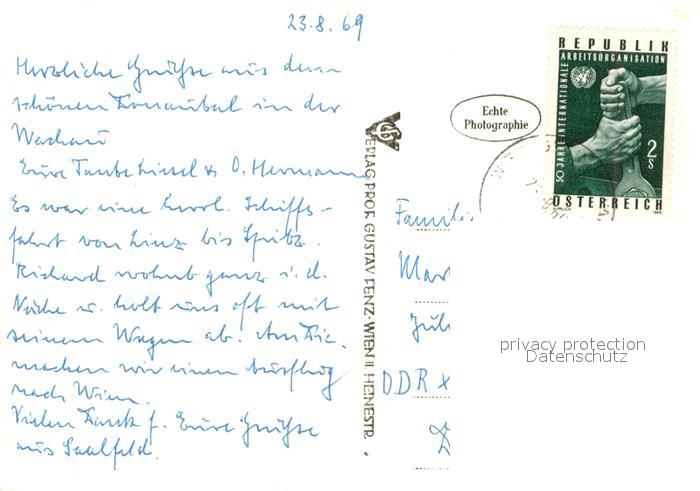 23.8.69
Herzliche Grüße aus dem
schönen Donautal in der
Wachau
Eure Tante Liesel & O. Hermann
Es war eine herrl. Schiffs-
fahrt von Linz bis Spitz.
Richard wohnt ganz i. d.
Nähe u. holt uns oft mit
seinem Wagen ab. Am Die.
machen wir einen Ausflug
nach Wien.
Vielen Dank f. Eure Grüße
aus Saalfeld.
VERLAG PROF. GUSTAV FENZ · WIEN II. HEINESTR.
Echte
Photographie
REPUBLIK
ARBEITSORGANISATION
50 JAHRE INTERNATIONALE
2
S
ÖSTERREICH
Familie
DDR X
privacy protection
Datenschutz